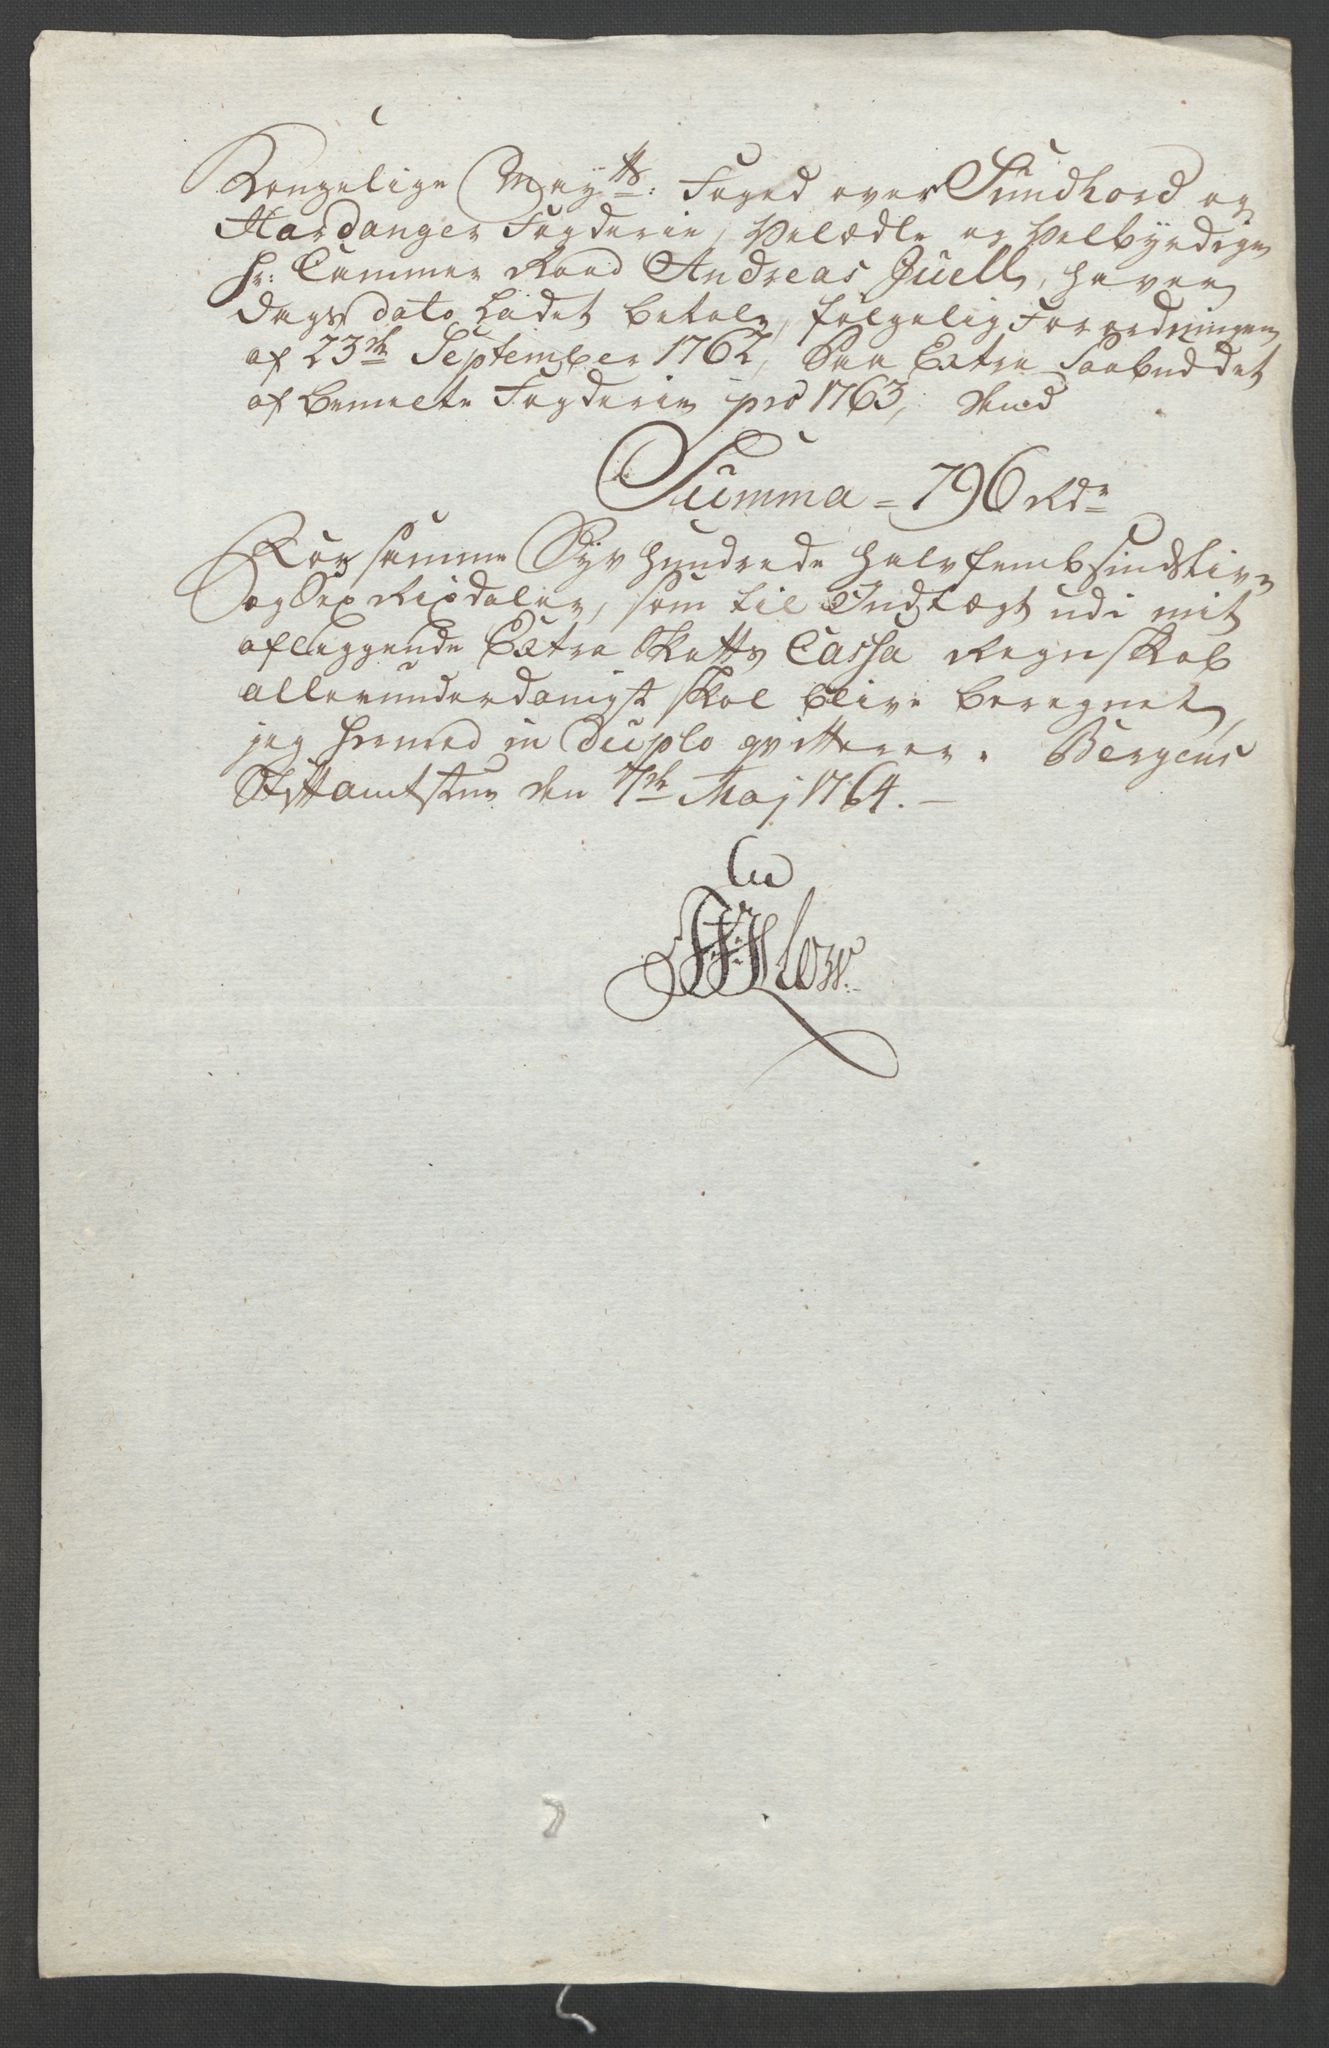 Kongelige Mayts: Foged over Sundhord og
Hardanger Fogderie, Velædle og Velbyrdige
Hr: Cammer Raad Andreas Juell, haver
dags dato ladet betale, følgelig Forordningen
af 23de September 1762, Paa Extra Paabuddet
af bemelte Fogderie pro 1763, dend
Summa = 796 Rdr
For samme Syv hundrede halvfembsindstive
og Sex Rixdaler, som til Indtægt udi mit
aflæggende Extra Skatts Cassa Regnskab
allerunderdanigst skal blive beregnet,
jeg hermed in Duplo qvitterer. Bergens
Stiftamtstue den 7de Maj 1764. —